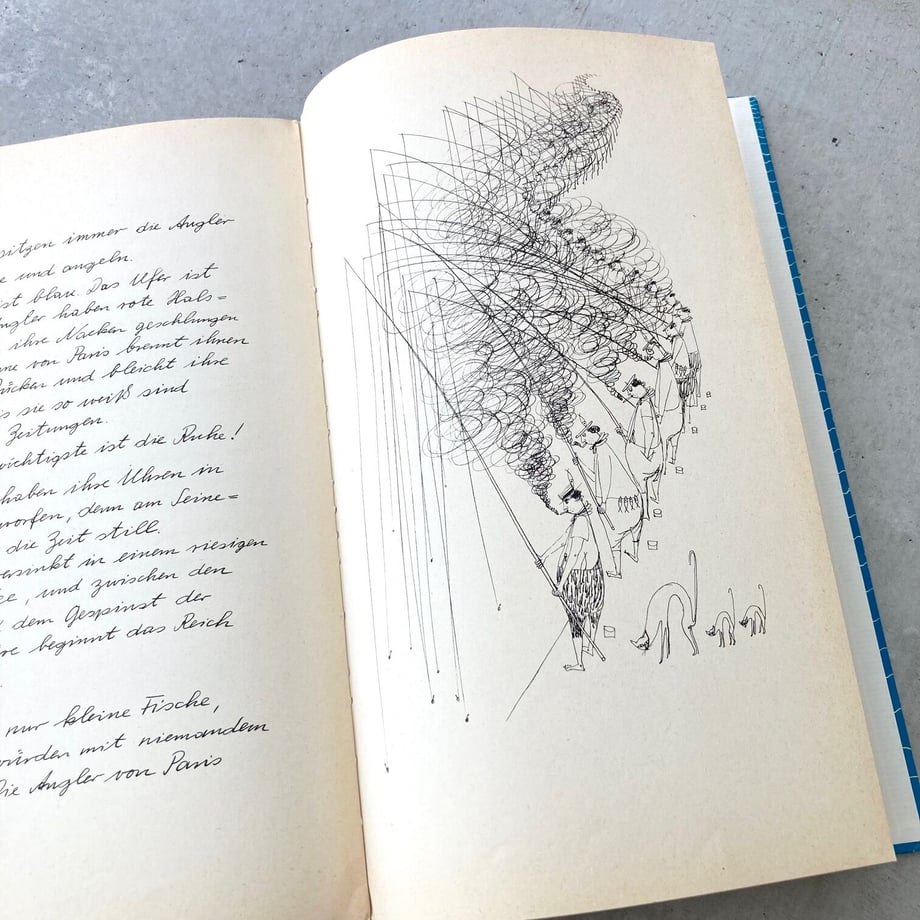 sitzen immer die Angler
und angeln.
ist blau. Das Ufer ist
Angler haben rote Hals=
ihre Nacken geschlungen
von Paris brennt ihnen
Rücken und bleicht ihre
sie so weiß sind
Zeitungen.
wichtigste ist die Ruhe!
haben ihre Uhren in
worfen, denn am Seine=
die Zeit still.
versinkt in einem riesigen
, und zwischen den
dem Gespinst der
beginnt das Reich
nur kleine Fische,
würden mit niemandem
Die Angler von Paris